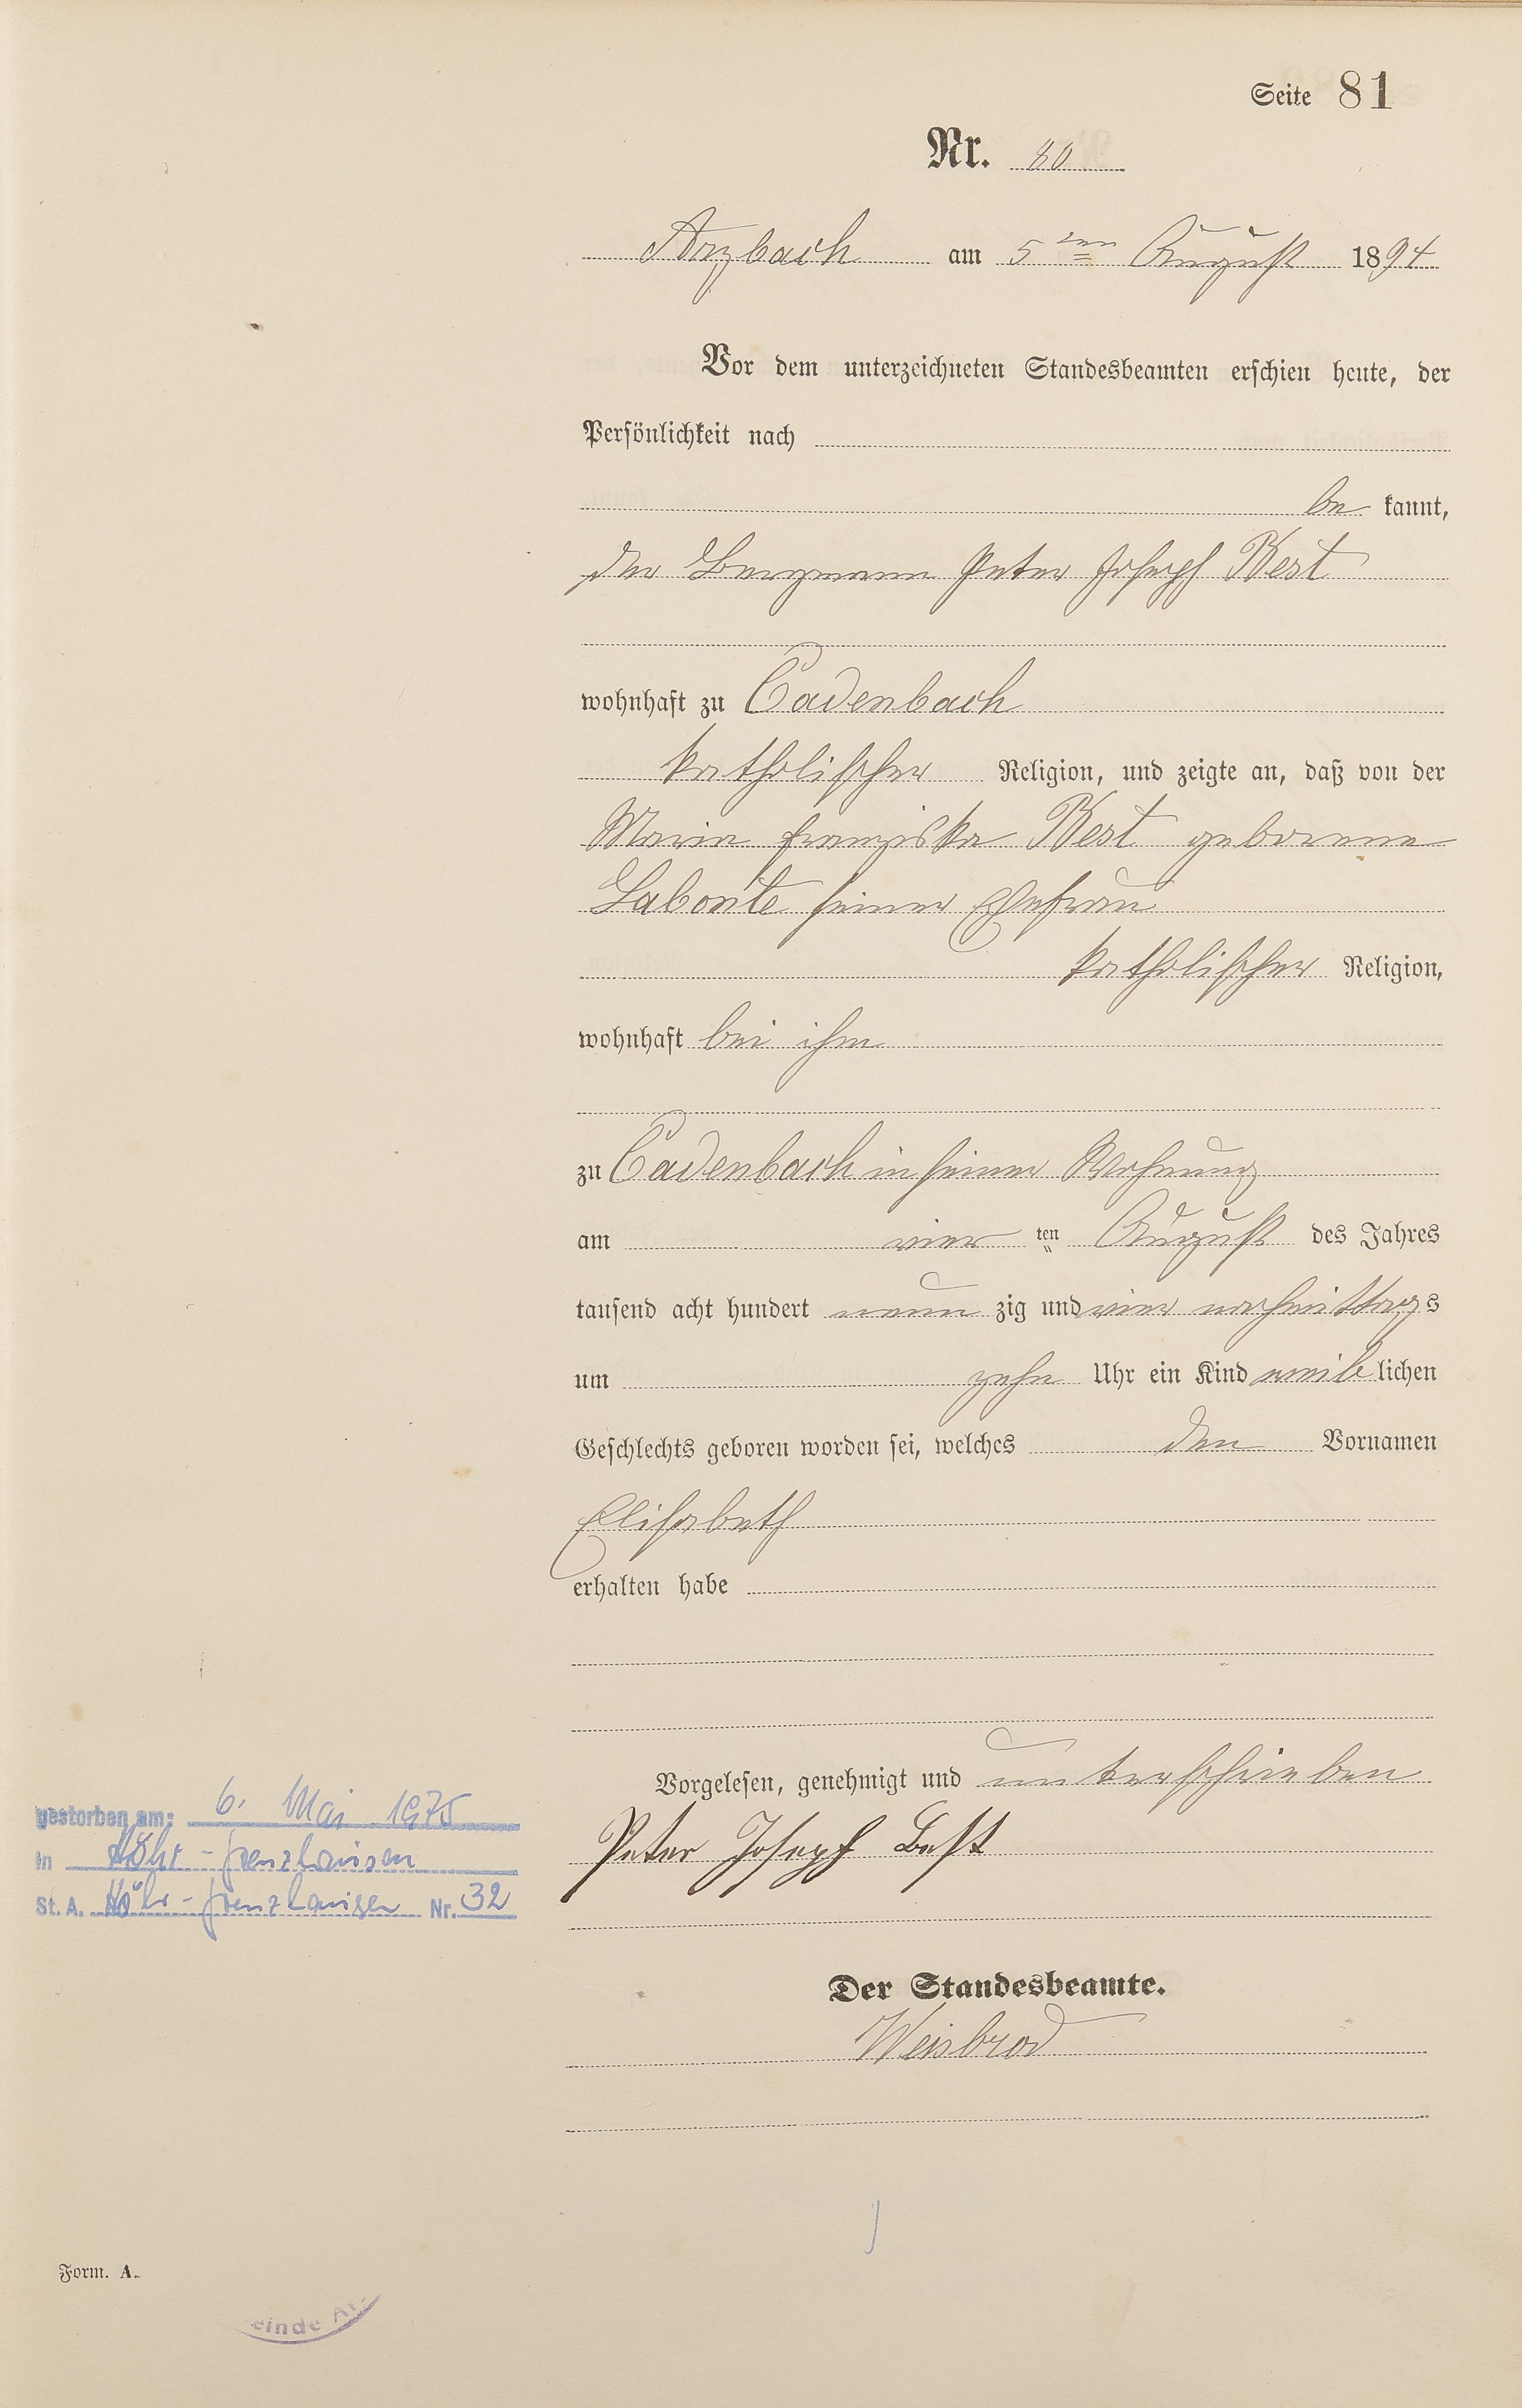 Seite 81
Nr. 80
Arzbach am 5ten August 1894
Vor dem unterzeichneten Standesbeamten erschien heute, der
Persönlichkeit nach
be kannt,
der Bergmann Peter Joseph Best
wohnhaft zu Cadenbach
katholischer Religion, und zeigte an, daß von der
Maria Franziska Best geborene
Labonte seiner Ehefrau
katholischer Religion,
wohnhaft bei ihm
zu Cadenbach in seiner Wohnung
am vier ten August des Jahres
tausend acht hundert neun zig und vier nachmittags
um zehn Uhr ein Kind weib lichen
Geschlechts geboren worden sei, welches den Vornamen
Elisabeth
erhalten habe
Vorgelesen, genehmigt und unterschrieben
Peter Joseph Best
gestorben am: 6. Mai 1975
in Höhr-Grenzhausen
St. A. Höhr-Grenzhausen Nr. 32
Der Standesbeamte.
Weisbrod
Form. A.